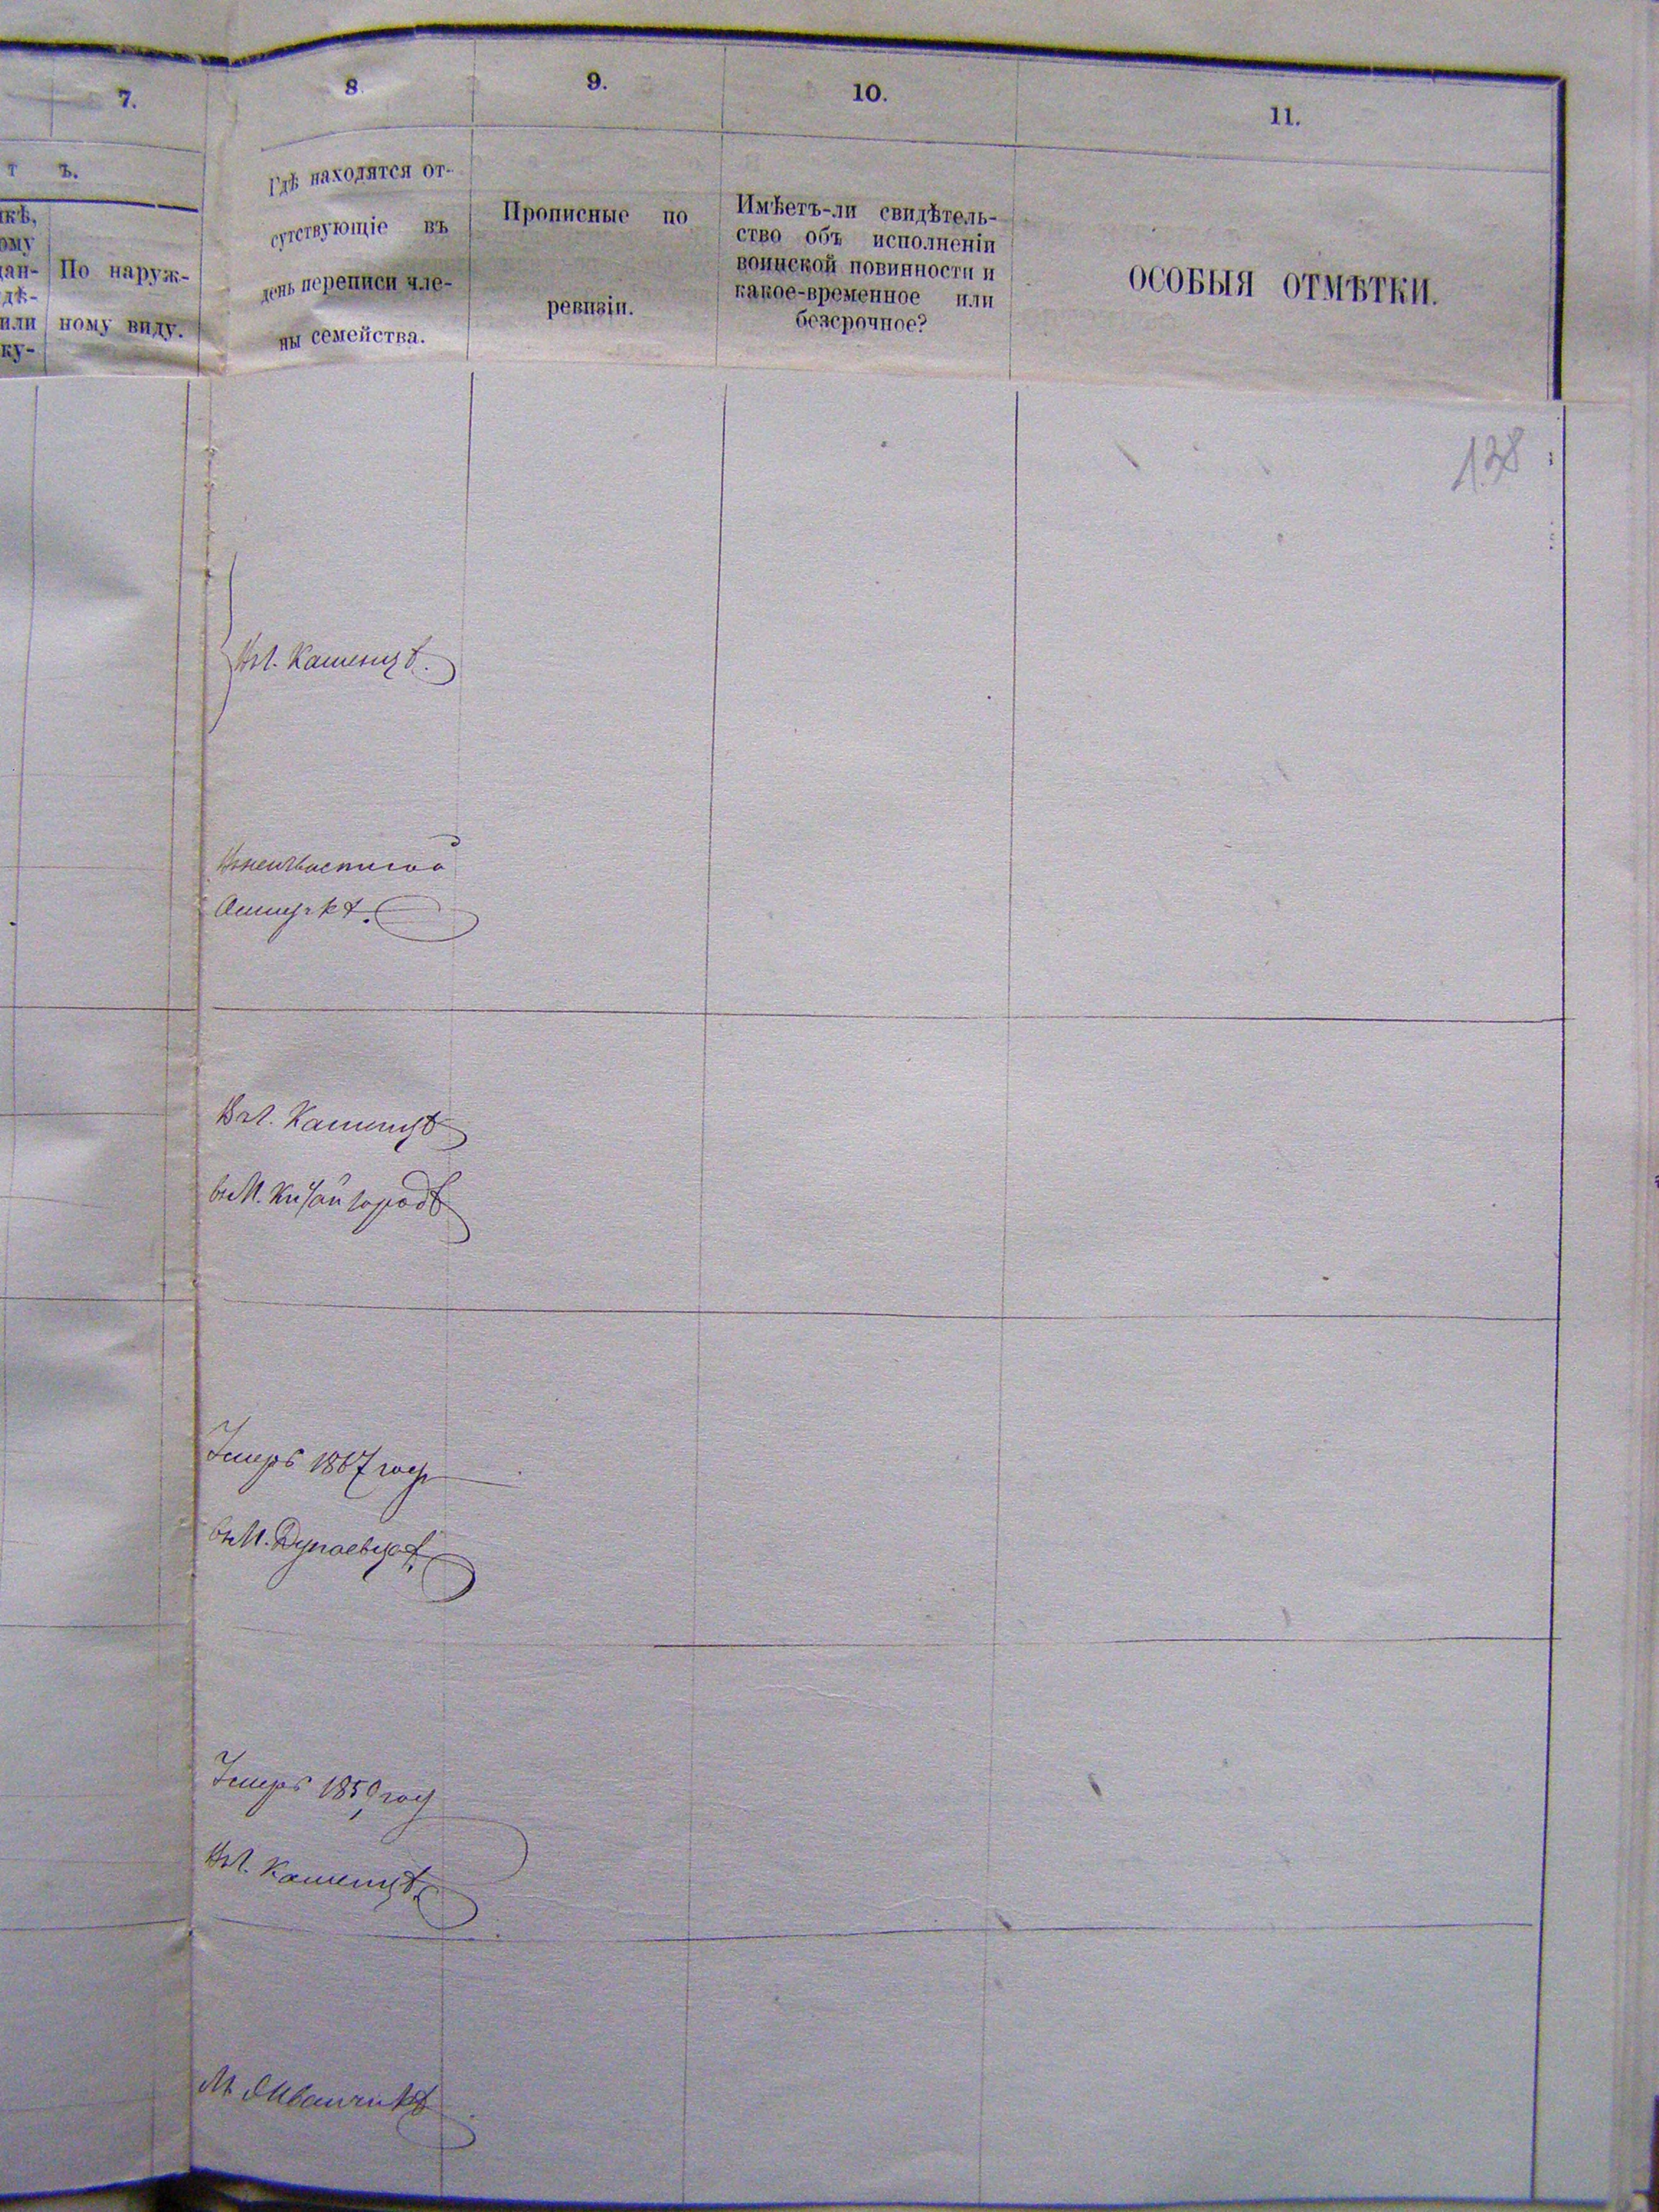 7.
8
9.
10.
11.
т ъ.
кѣ,
ому
дан-
дѣ-
или
ку-
По наруж-
ному виду.
Гдѣ находятся от-
сутствующіе въ
день переписи чле-
ны семейства.
Прописные по
ревизіи.
Имѣетъ-ли свидѣтель-
ство объ исполненіи
воинской повинности и
какое-временное или
безсрочное?
ОСОБЫЯ ОТМѢТКИ.
138
Каменцѣ.
Каменцѣ
въ М. Китайгородѣ
Умеръ 1867 году
въ М. Дунаевцахъ
Умеръ 1859 году
Каменцѣ